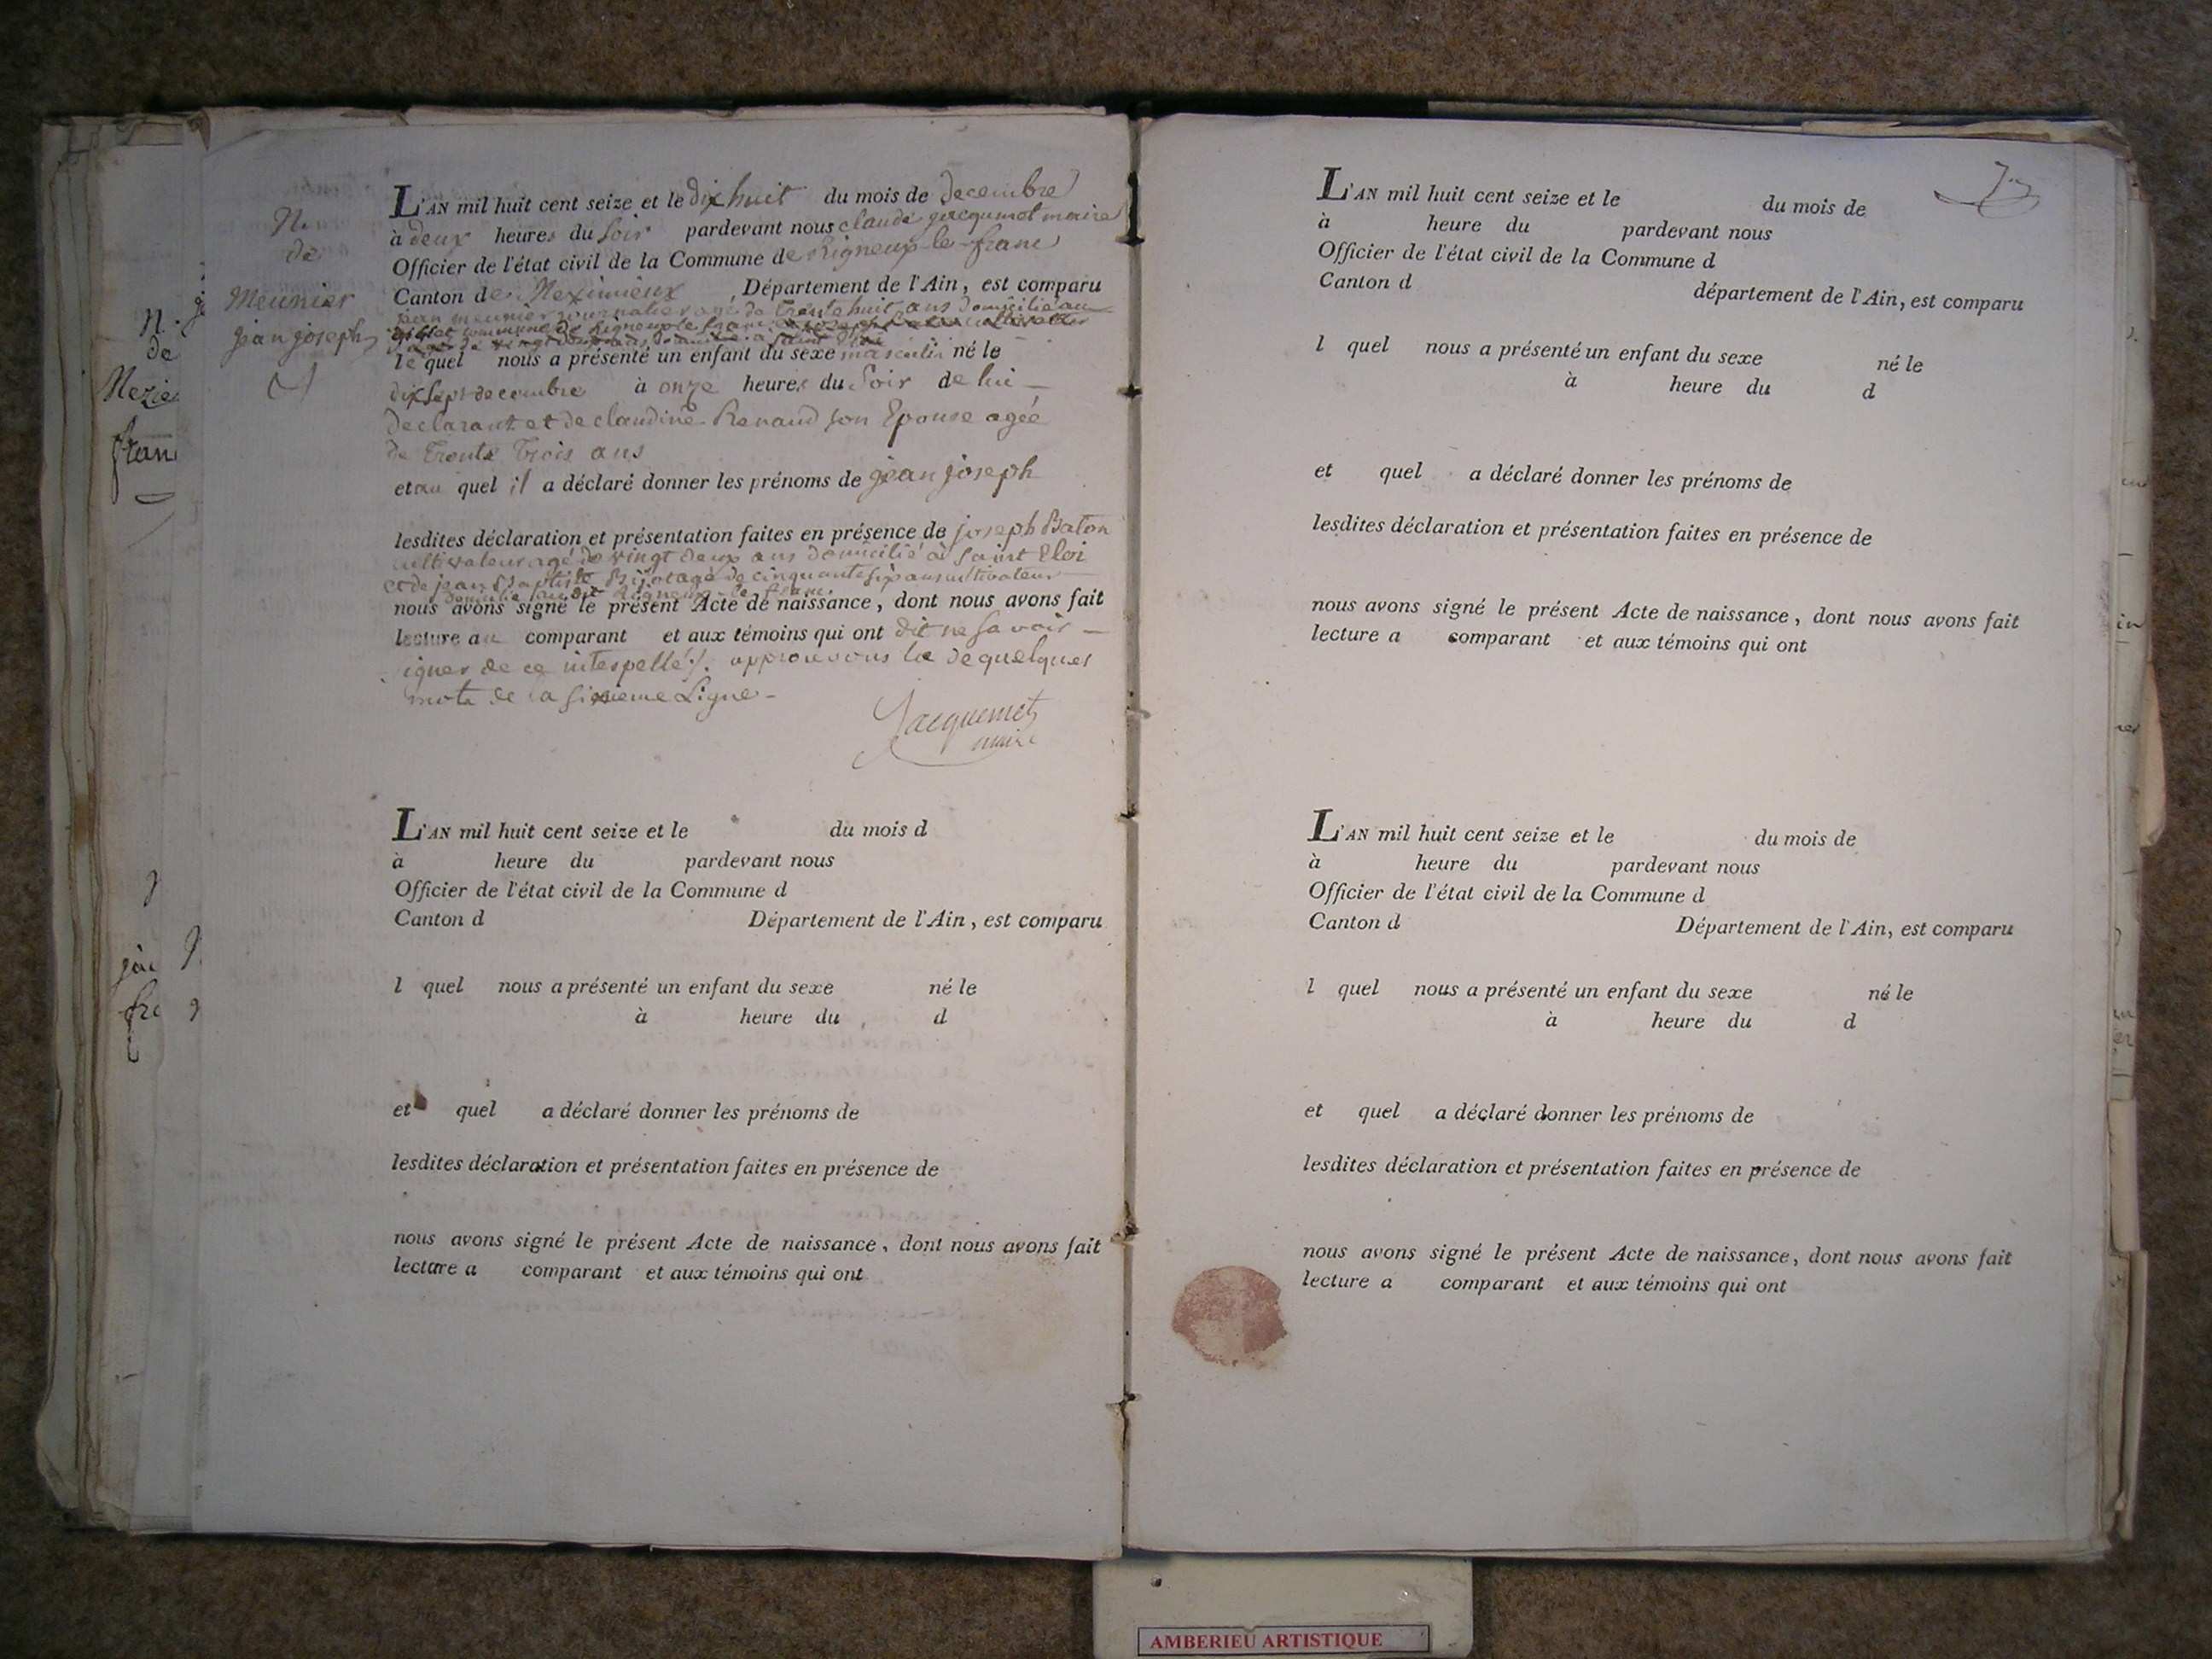 N.
de
Meunier
jean joseph
L'AN mil huit cent seize et le dix huit du mois de decembre
à deux heures du soir pardevant nous claude jacquemet maire
Officier de l'état civil de la Commune de Rigneux-le-franc
Canton de Meximieux, Département de l'Ain, est comparu
jean meunier journalier agé de trente huit ans domicilié au
commune de Rigneux le franc et joseph Baton cultivateur
agé de vingt deux ans domicilié à saint Eloi
lequel nous a présenté un enfant du sexe masculin né le
dix sept decembre à onze heures du soir de lui
declarant et de claudine Renaud son Epouse agée
de trente trois ans
et au quel il a déclaré donner les prénoms de jean joseph
lesdites déclaration et présentation faites en présence de joseph Baton
cultivateur agé de vingt deux ans domicilié à saint Eloi
et de jean Baptiste agé de cinquante six ans cultivateur
domicilié audit Rigneux-le-franc.
nous avons signé le présent Acte de naissance, dont nous avons fait
lecture au comparant et aux témoins qui ont dit ne savoir
signer de ce interpellé ./. approuvons la de quelques
mots de la sixieme Ligne -
Jacquemet
maire
L'AN mil huit cent seize et le du mois d
à heure du pardevant nous
Officier de l'état civil de la Commune d
Canton d Département de l'Ain, est comparu
l quel nous a présenté un enfant du sexe né le
à heure du d
et quel a déclaré donner les prénoms de
lesdites déclaration et présentation faites en présence de
nous avons signé le présent Acte de naissance, dont nous avons fait
lecture a comparant et aux témoins qui ont
L'AN mil huit cent seize et le du mois de
à heure du pardevant nous
Officier de l'état civil de la Commune d
Canton d département de l'Ain, est comparu
l quel nous a présenté un enfant du sexe né le
à heure du d
et quel a déclaré donner les prénoms de
lesdites déclaration et présentation faites en présence de
nous avons signé le présent Acte de naissance, dont nous avons fait
lecture a comparant et aux témoins qui ont
L'AN mil huit cent seize et le du mois de
à heure du pardevant nous
Officier de l'état civil de la Commune d
Canton d Département de l'Ain, est comparu
l quel nous a présenté un enfant du sexe né le
à heure du d
et quel a déclaré donner les prénoms de
lesdites déclaration et présentation faites en présence de
nous avons signé le présent Acte de naissance, dont nous avons fait
lecture a comparant et aux témoins qui ont
AMBERIEU ARTISTIQUE